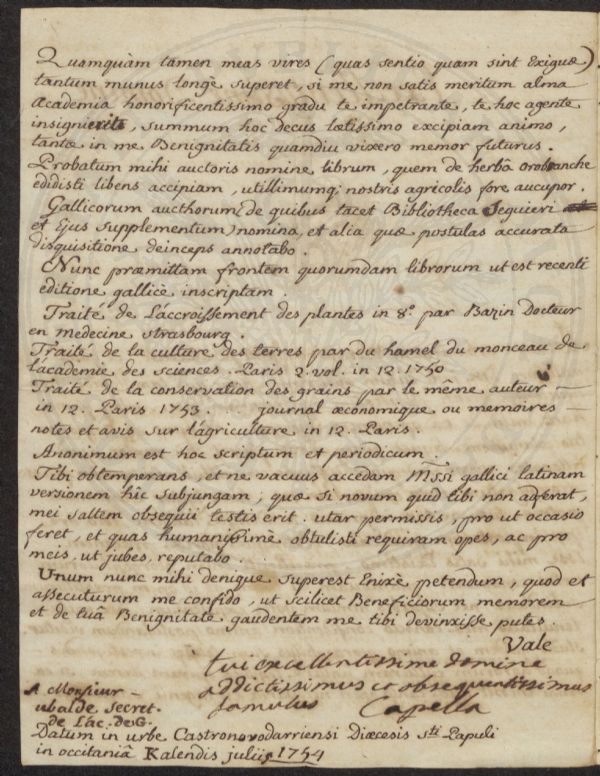 Quamquàm tamen meas vires (quas sentio quam sint Exiguæ)
tantum munus longè superet, si me non satis meritum alma
Academia honorificentissimo gradu te impetrante, te hoc agente
insignierit, summum hoc decus lætissimo excipiam animo,
tantæ in me Benignitatis quamdiu vixero memor futurus.
Probatum mihi auctoris nomine librum, quem de herbâ orobanche
edidisti libens accipiam, utillimumq; nostris agricolis fore aucupor.
Gallicorum aucthorum (de quibus tacet Bibliotheca Seguieri
et Ejus Supplementum) nomina, et alia quæ postulas accurata
disquisitione deinceps annotabo.
Nunc præmittam frontem quorumdam librorum ut est recenti
editione gallicè inscriptam.
Traité de L'áccroissement des plantes in 8º par Bazin Docteur
en medecine strasbourg.
Traité de la culture des terres par du hamel du monceau de
l'academie des sciences. Paris 2. vol. in 12. 1750
Traité de la conservation des grains par le même auteur —
in 12. Paris 1753. . . . journal œconomique ou memoires —
notes et avis sur l'agriculture in 12. Paris.
Anonimum est hoc scriptum et periodicum.
Tibi obtemperans, et ne vacuus accedam Mssi gallici latinam
versionem hîc subjungam; quæ si novum quid tibi non adferat,
mei saltem obsequii testis erit. utar permissis, pro ut occasio
feret, et quas humanissimè obtulisti requiram opes, ac pro
meis, ut jubes, reputabo.
Unum nunc mihi denique superest Enixè petendum, quod et
assecuturum me confido, ut scilicet Beneficiorum memorem
et de tuâ Benignitate gaudentem me tibi devinxisse putes.
Vale
tui excellentissime domine
addictissimus et obsequentissimus
famulus Capella
A Monsieur —
ubalde Secret.
de L'ac. de G.
Datum in urbe Castronovodarriensi Diœcesis sti Papuli
in occitaniâ Kalendis julii 1754